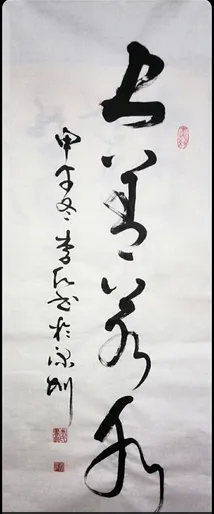 上善若水
甲午冬李□书于深圳